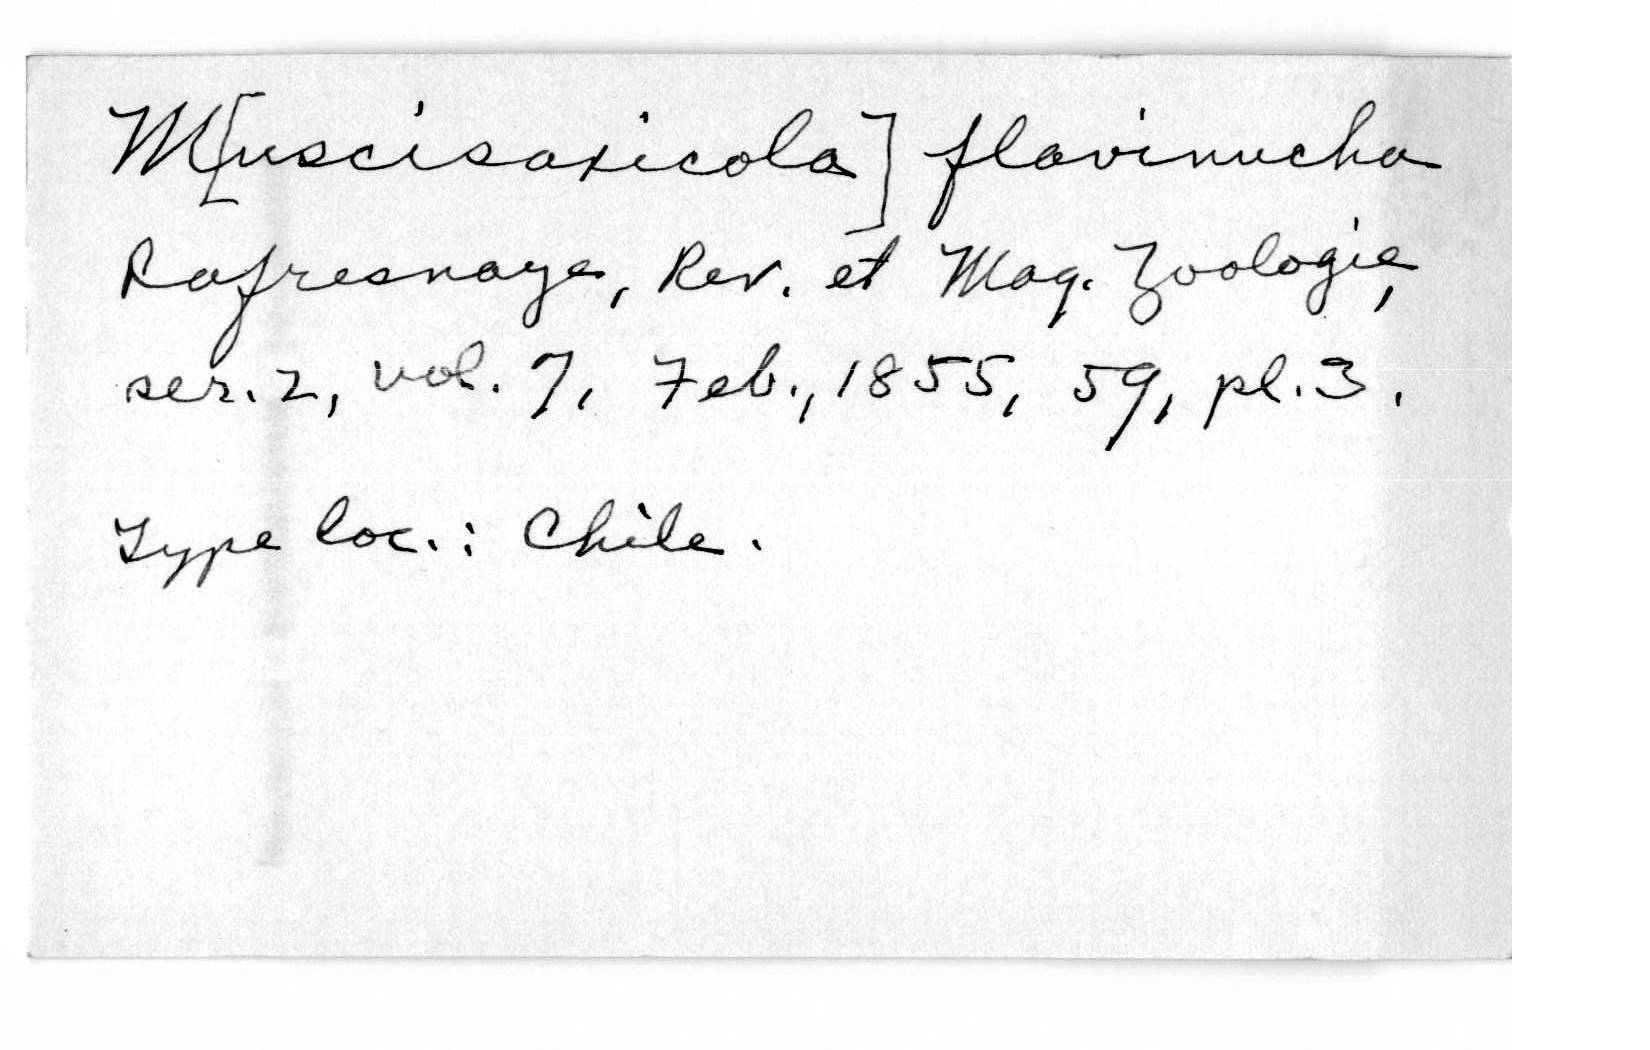 M[uscisaxicola] flavinucha
Lafresnaye, Rev. et Mag. Zoologie,
ser. 2, vol. 7, Feb., 1855, 59, pl. 3.
Type loc.: Chile.